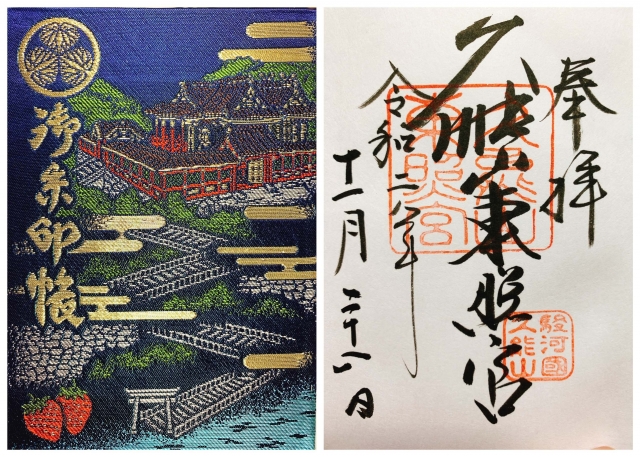 御朱印帳
奉拝
久能山東照宮
令和二年
十一月二十八日
久能山
東照宮
駿河國
久能山